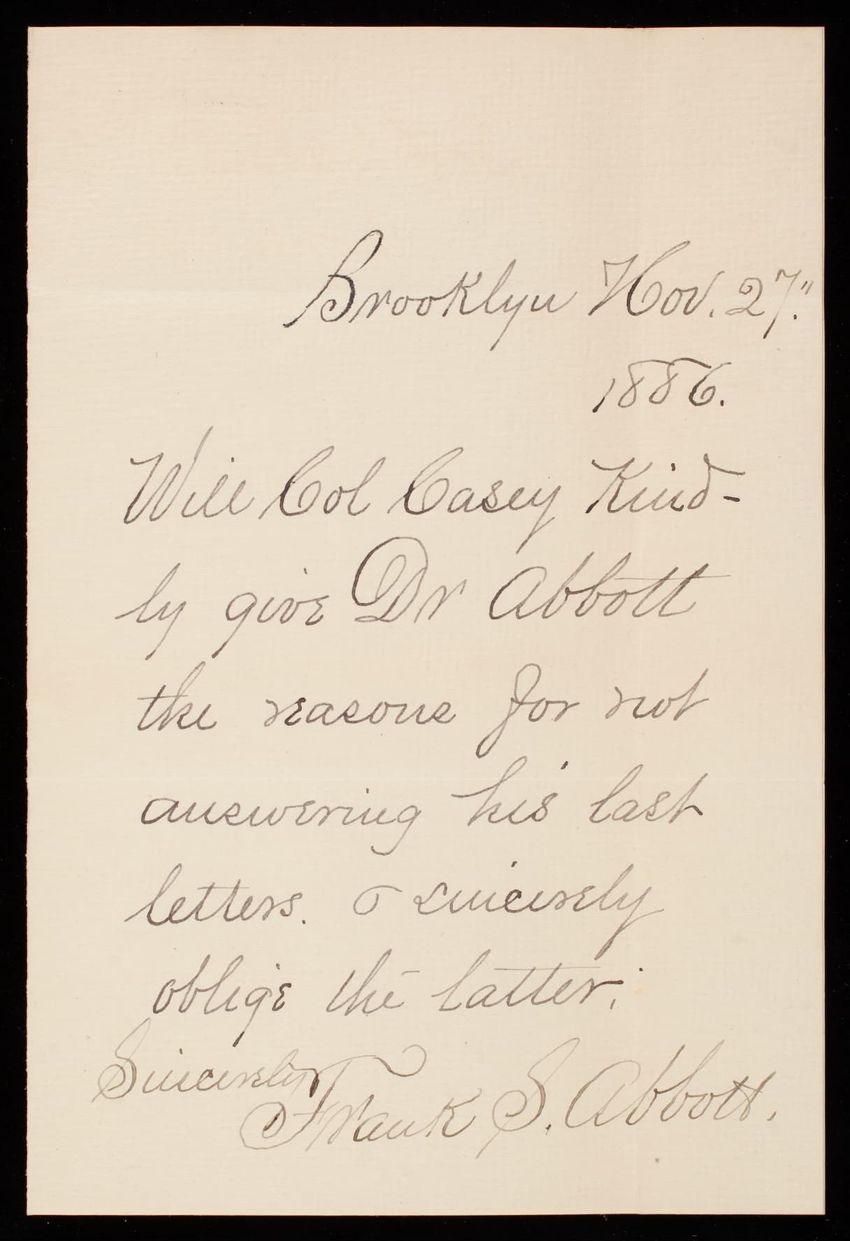 Brooklyn Nov. 27."
1886.
Will Col Casey Kind-
ly give Dr Abbott
the reasons for not
answering his last
letters. & sincerely
oblige the latter;
Sincerely
Frank S. Abbott.